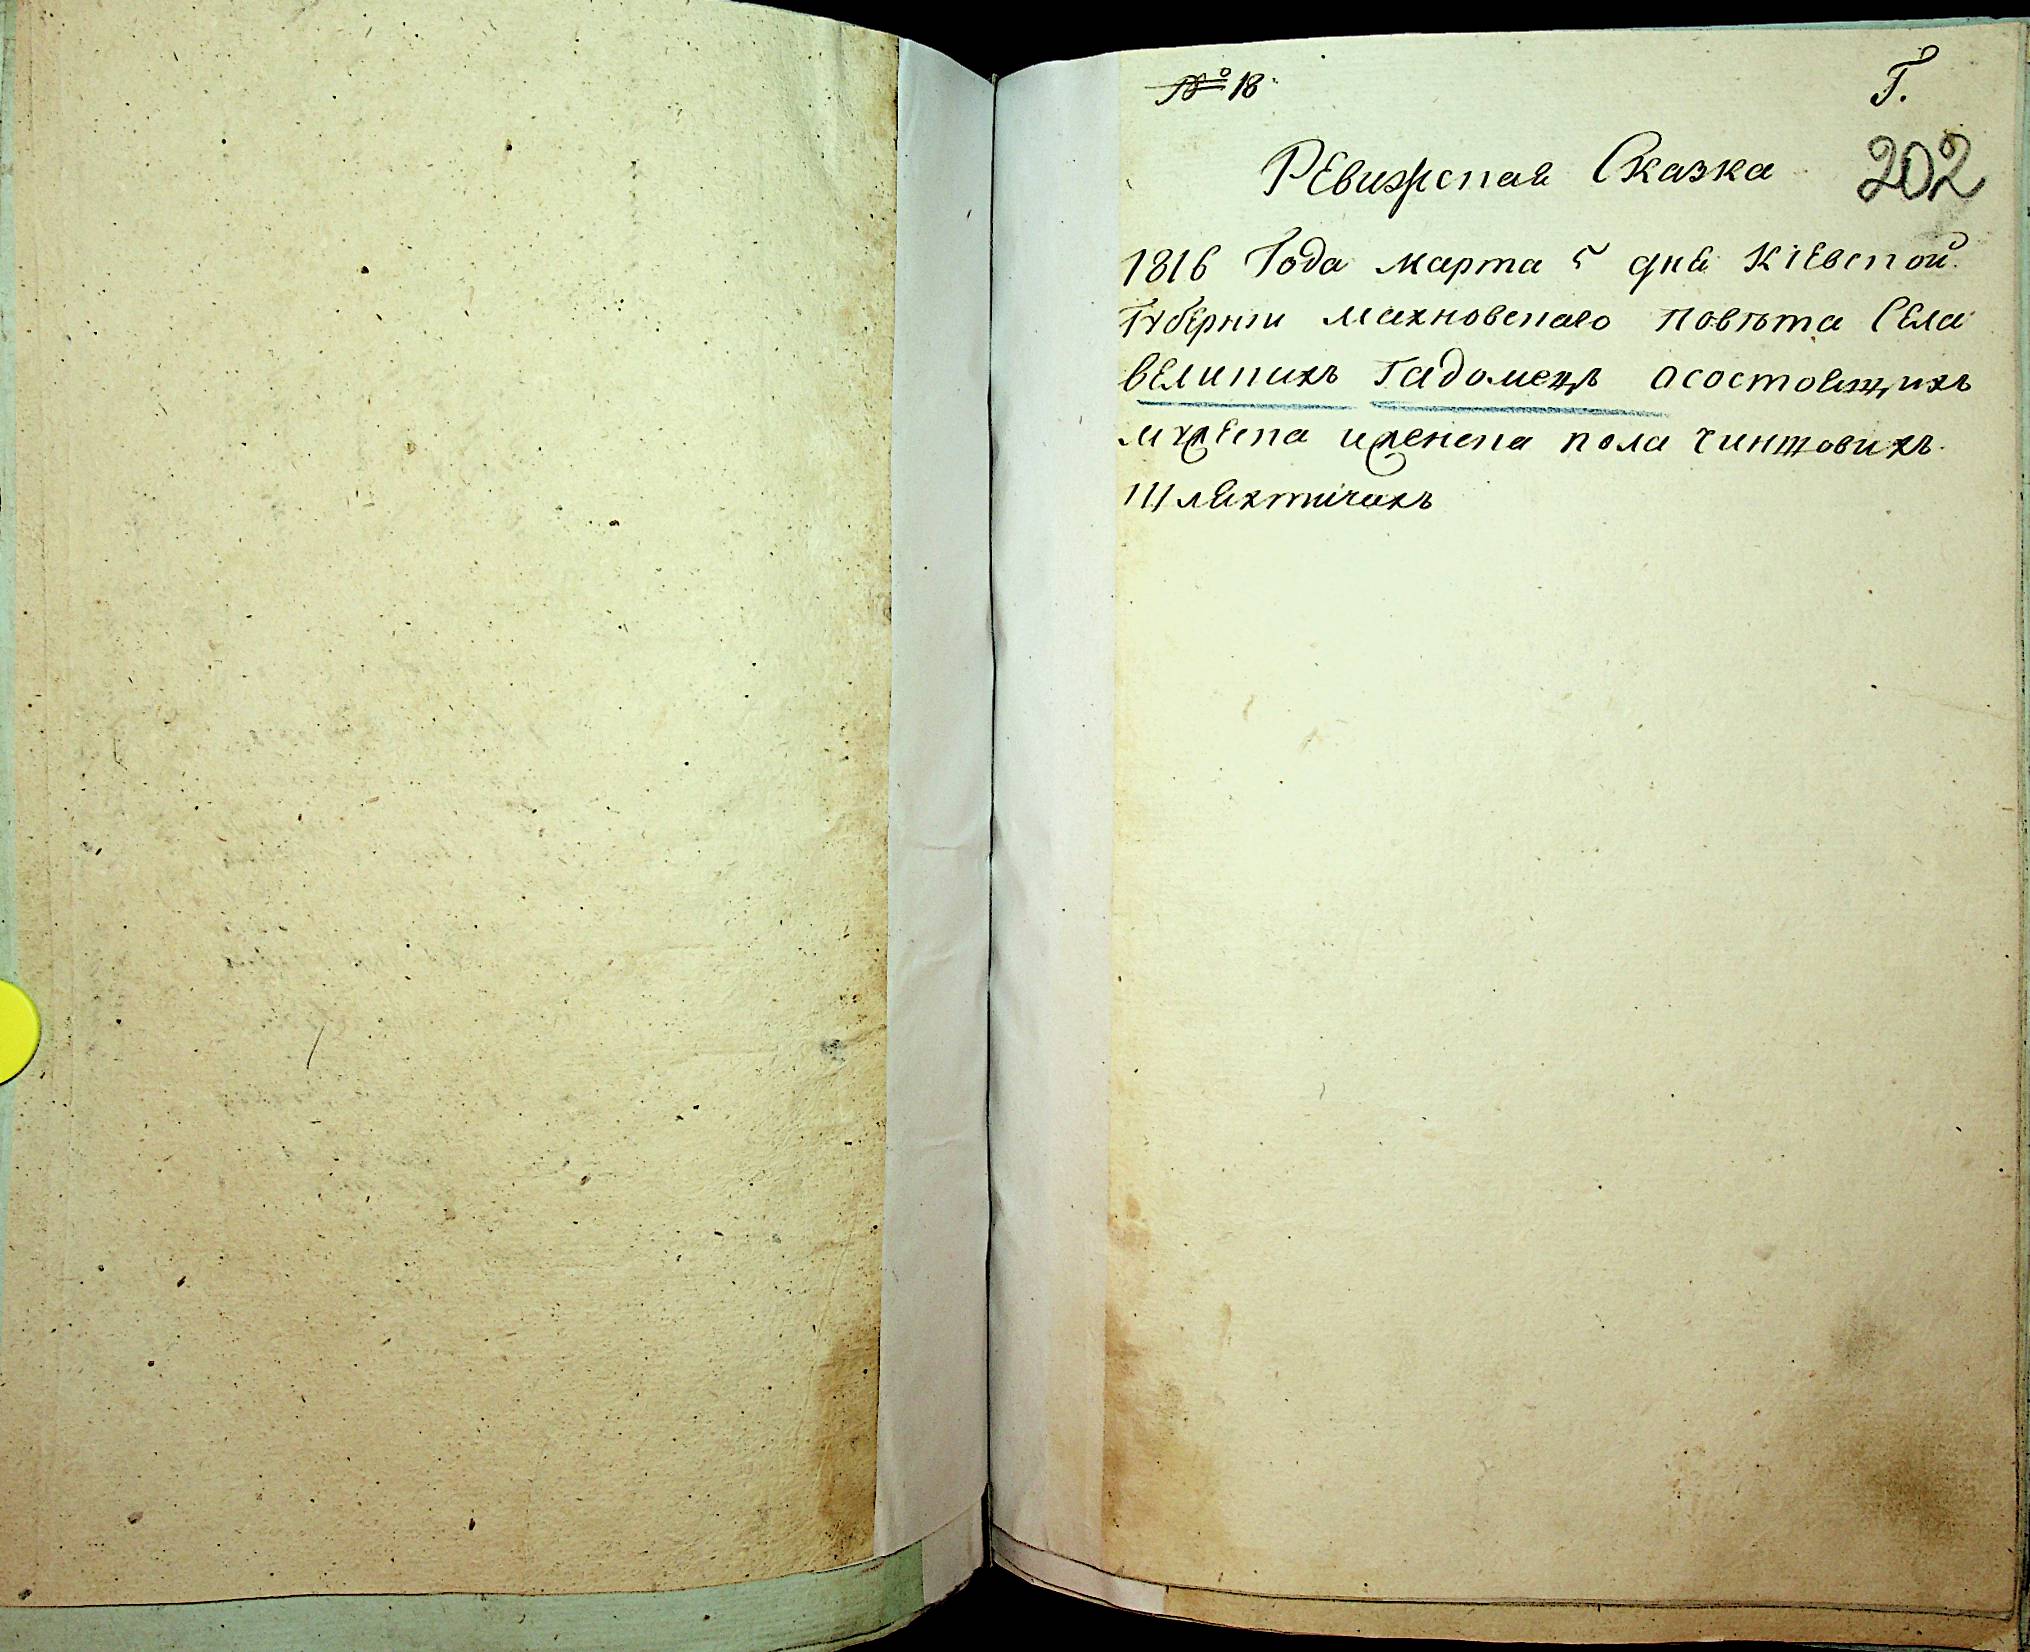 № 18
Г.
Ревижская Сказка
202
1816 Года марта 5 дня Кіевской
Губерніи махновскаго повѣта Села
великихъ гадомецъ осостоящихъ
мужеска иженска пола чиншовихъ
Шляхтичахъ